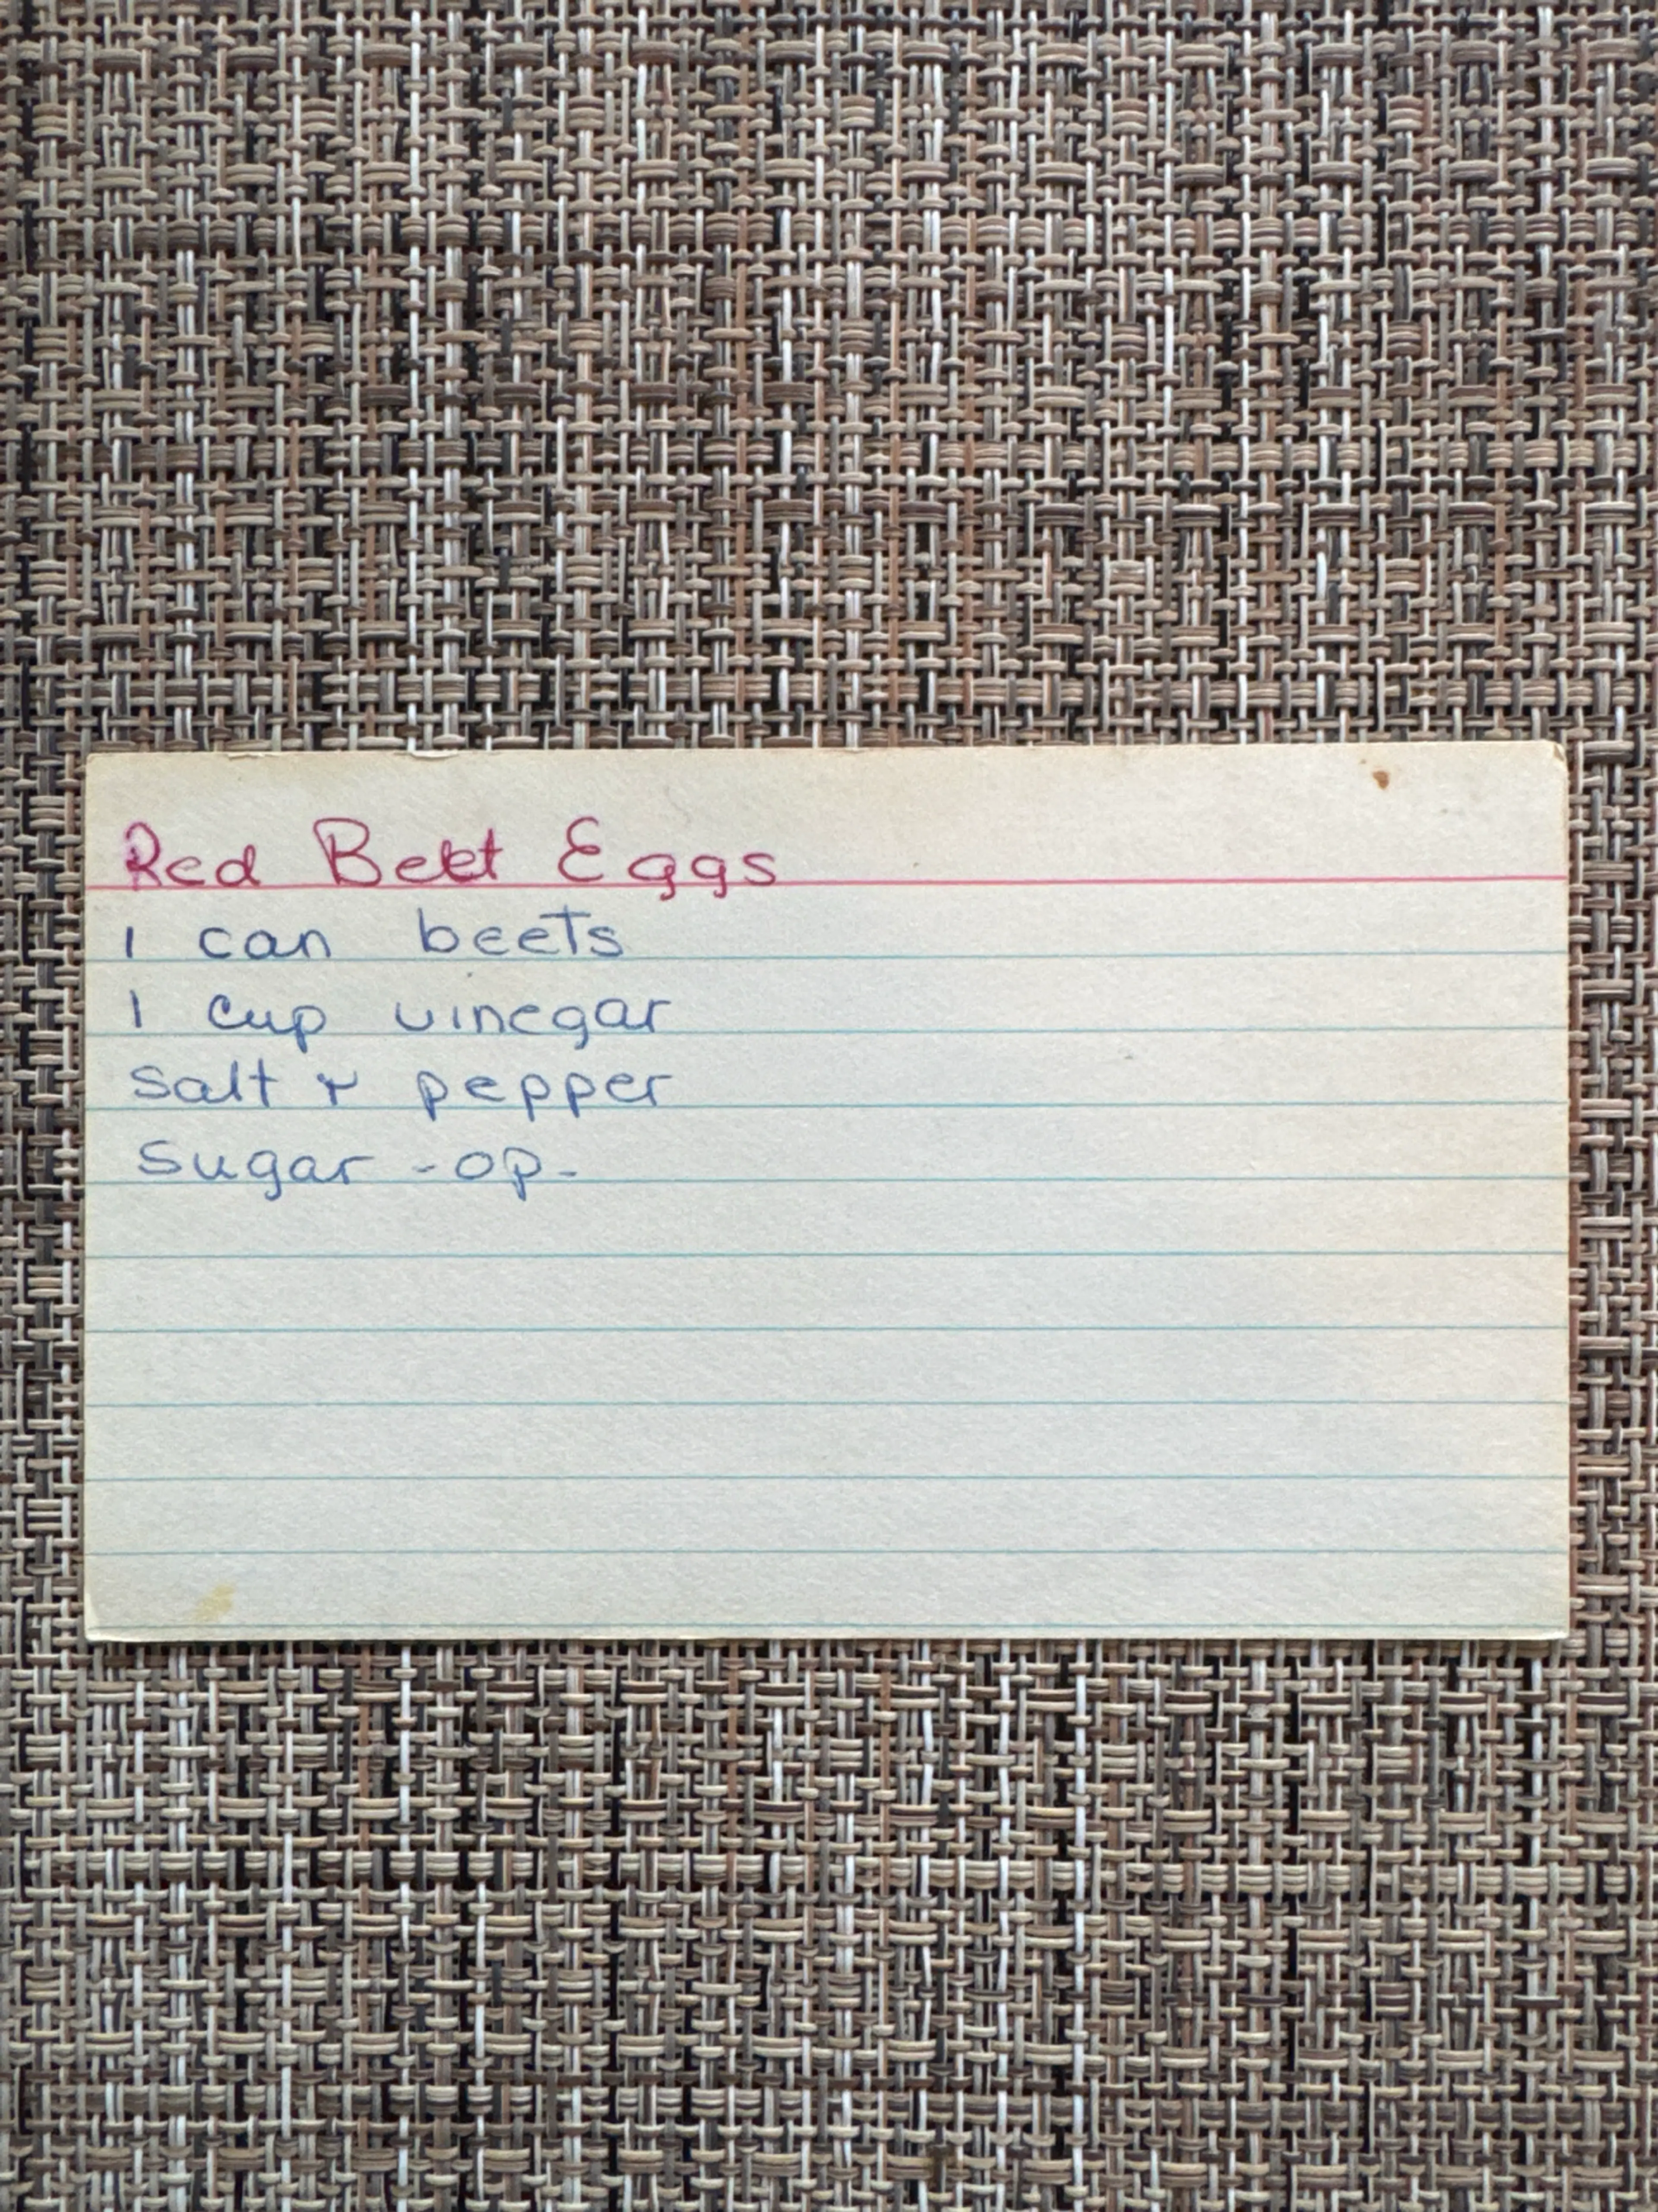 Red Beet Eggs
1 can beets
1 cup vinegar
salt & pepper
sugar -op-